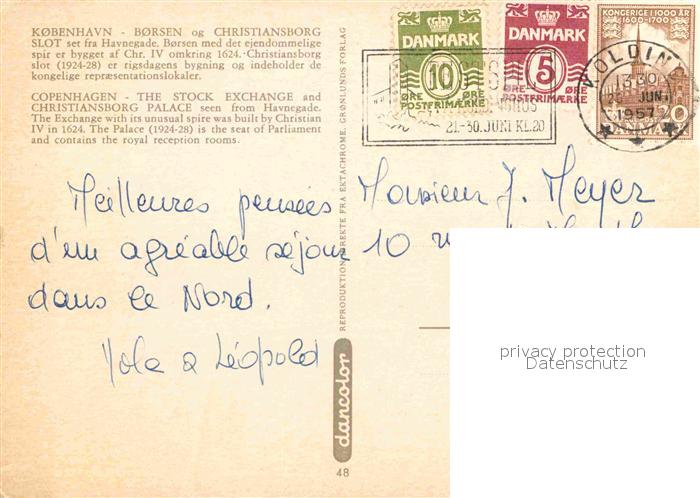 KØBENHAVN - BØRSEN og CHRISTIANSBORG
SLOT set fra Havnegade. Børsen med det ejendommelige
spir er bygget af Chr. IV omkring 1624. Christiansborg
slot (1924-28) er rigsdagens bygning og indeholder de
kongelige repræsentationslokaler.
COPENHAGEN - THE STOCK EXCHANGE and
CHRISTIANSBORG PALACE seen from Havnegade.
The Exchange with its unusual spire was built by Christian
IV in 1624. The Palace (1924-28) is the seat of Parliament
and contains the royal reception rooms.
Meilleures pensées
d'un agréable séjour
dans le Nord.
Yola & Léopold
REPRODUKTION DIREKTE FRA EKTACHROME. GRØNLUNDS FORLAG
dancolor
48
DANMARK
10
ØRE ØRE
POSTFRIMÆRKE
DANMARK
5
ØRE ØRE
POSTFRIMÆRKE
KONGERIGE I 1000 ÅR
1600-1700
20
21.-30. JUNI KL.20
KOLDING
13.30
JUNI
1957
Monsieur J. Meyer
10
privacy protection
Datenschutz